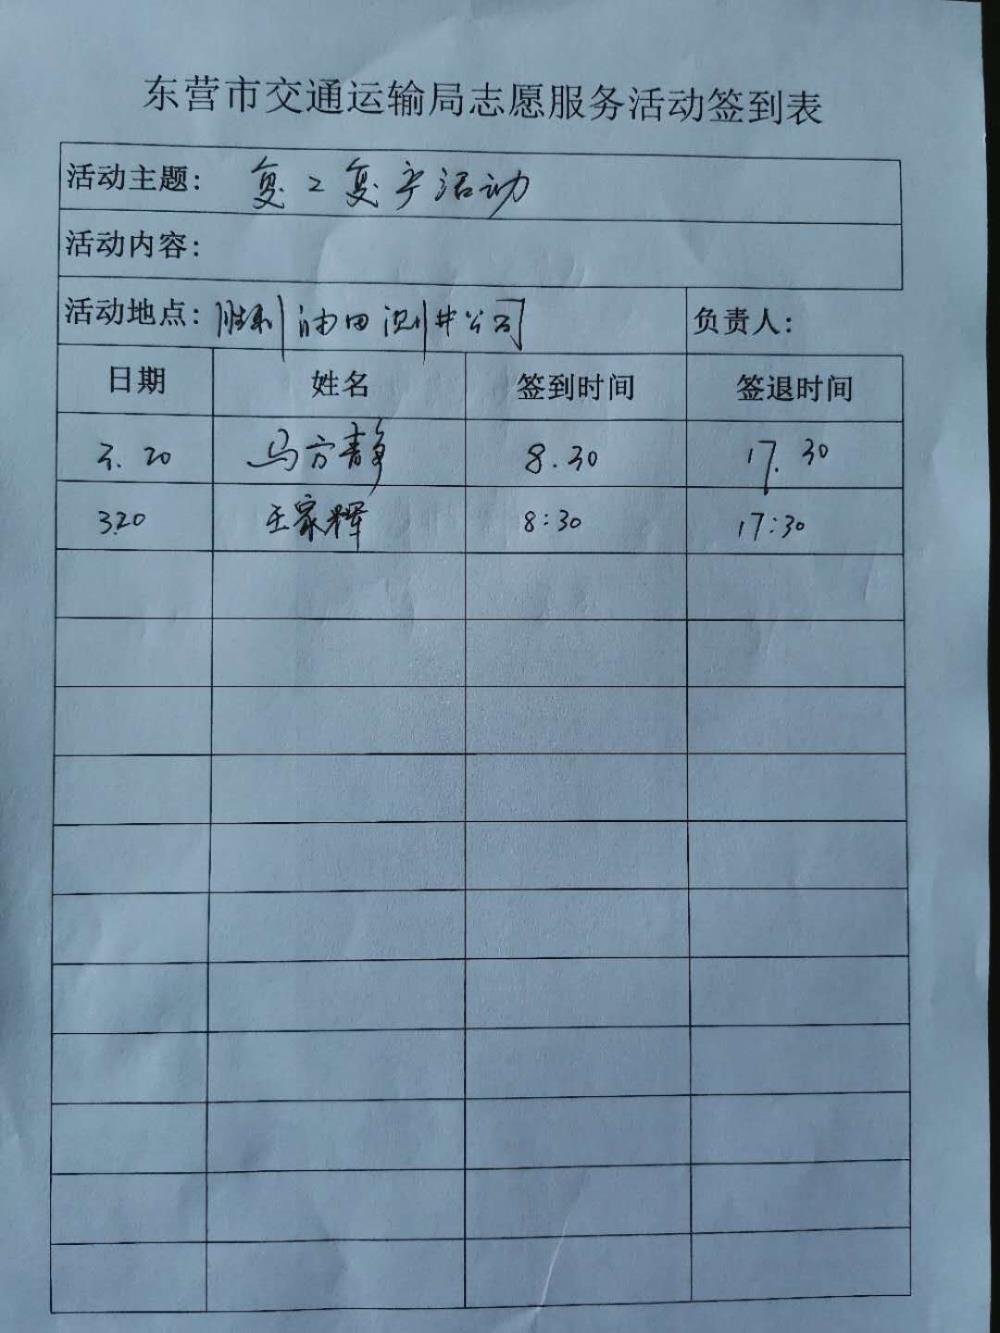 东营市交通运输局志愿服务活动签到表
活动主题： 复工复产活动
活动内容：
活动地点： 胜利油田测井公司 负责人：
日期 姓名 签到时间 签退时间
3.20 马方静 8.30 17.30
3.20 王家辉 8:30 17:30